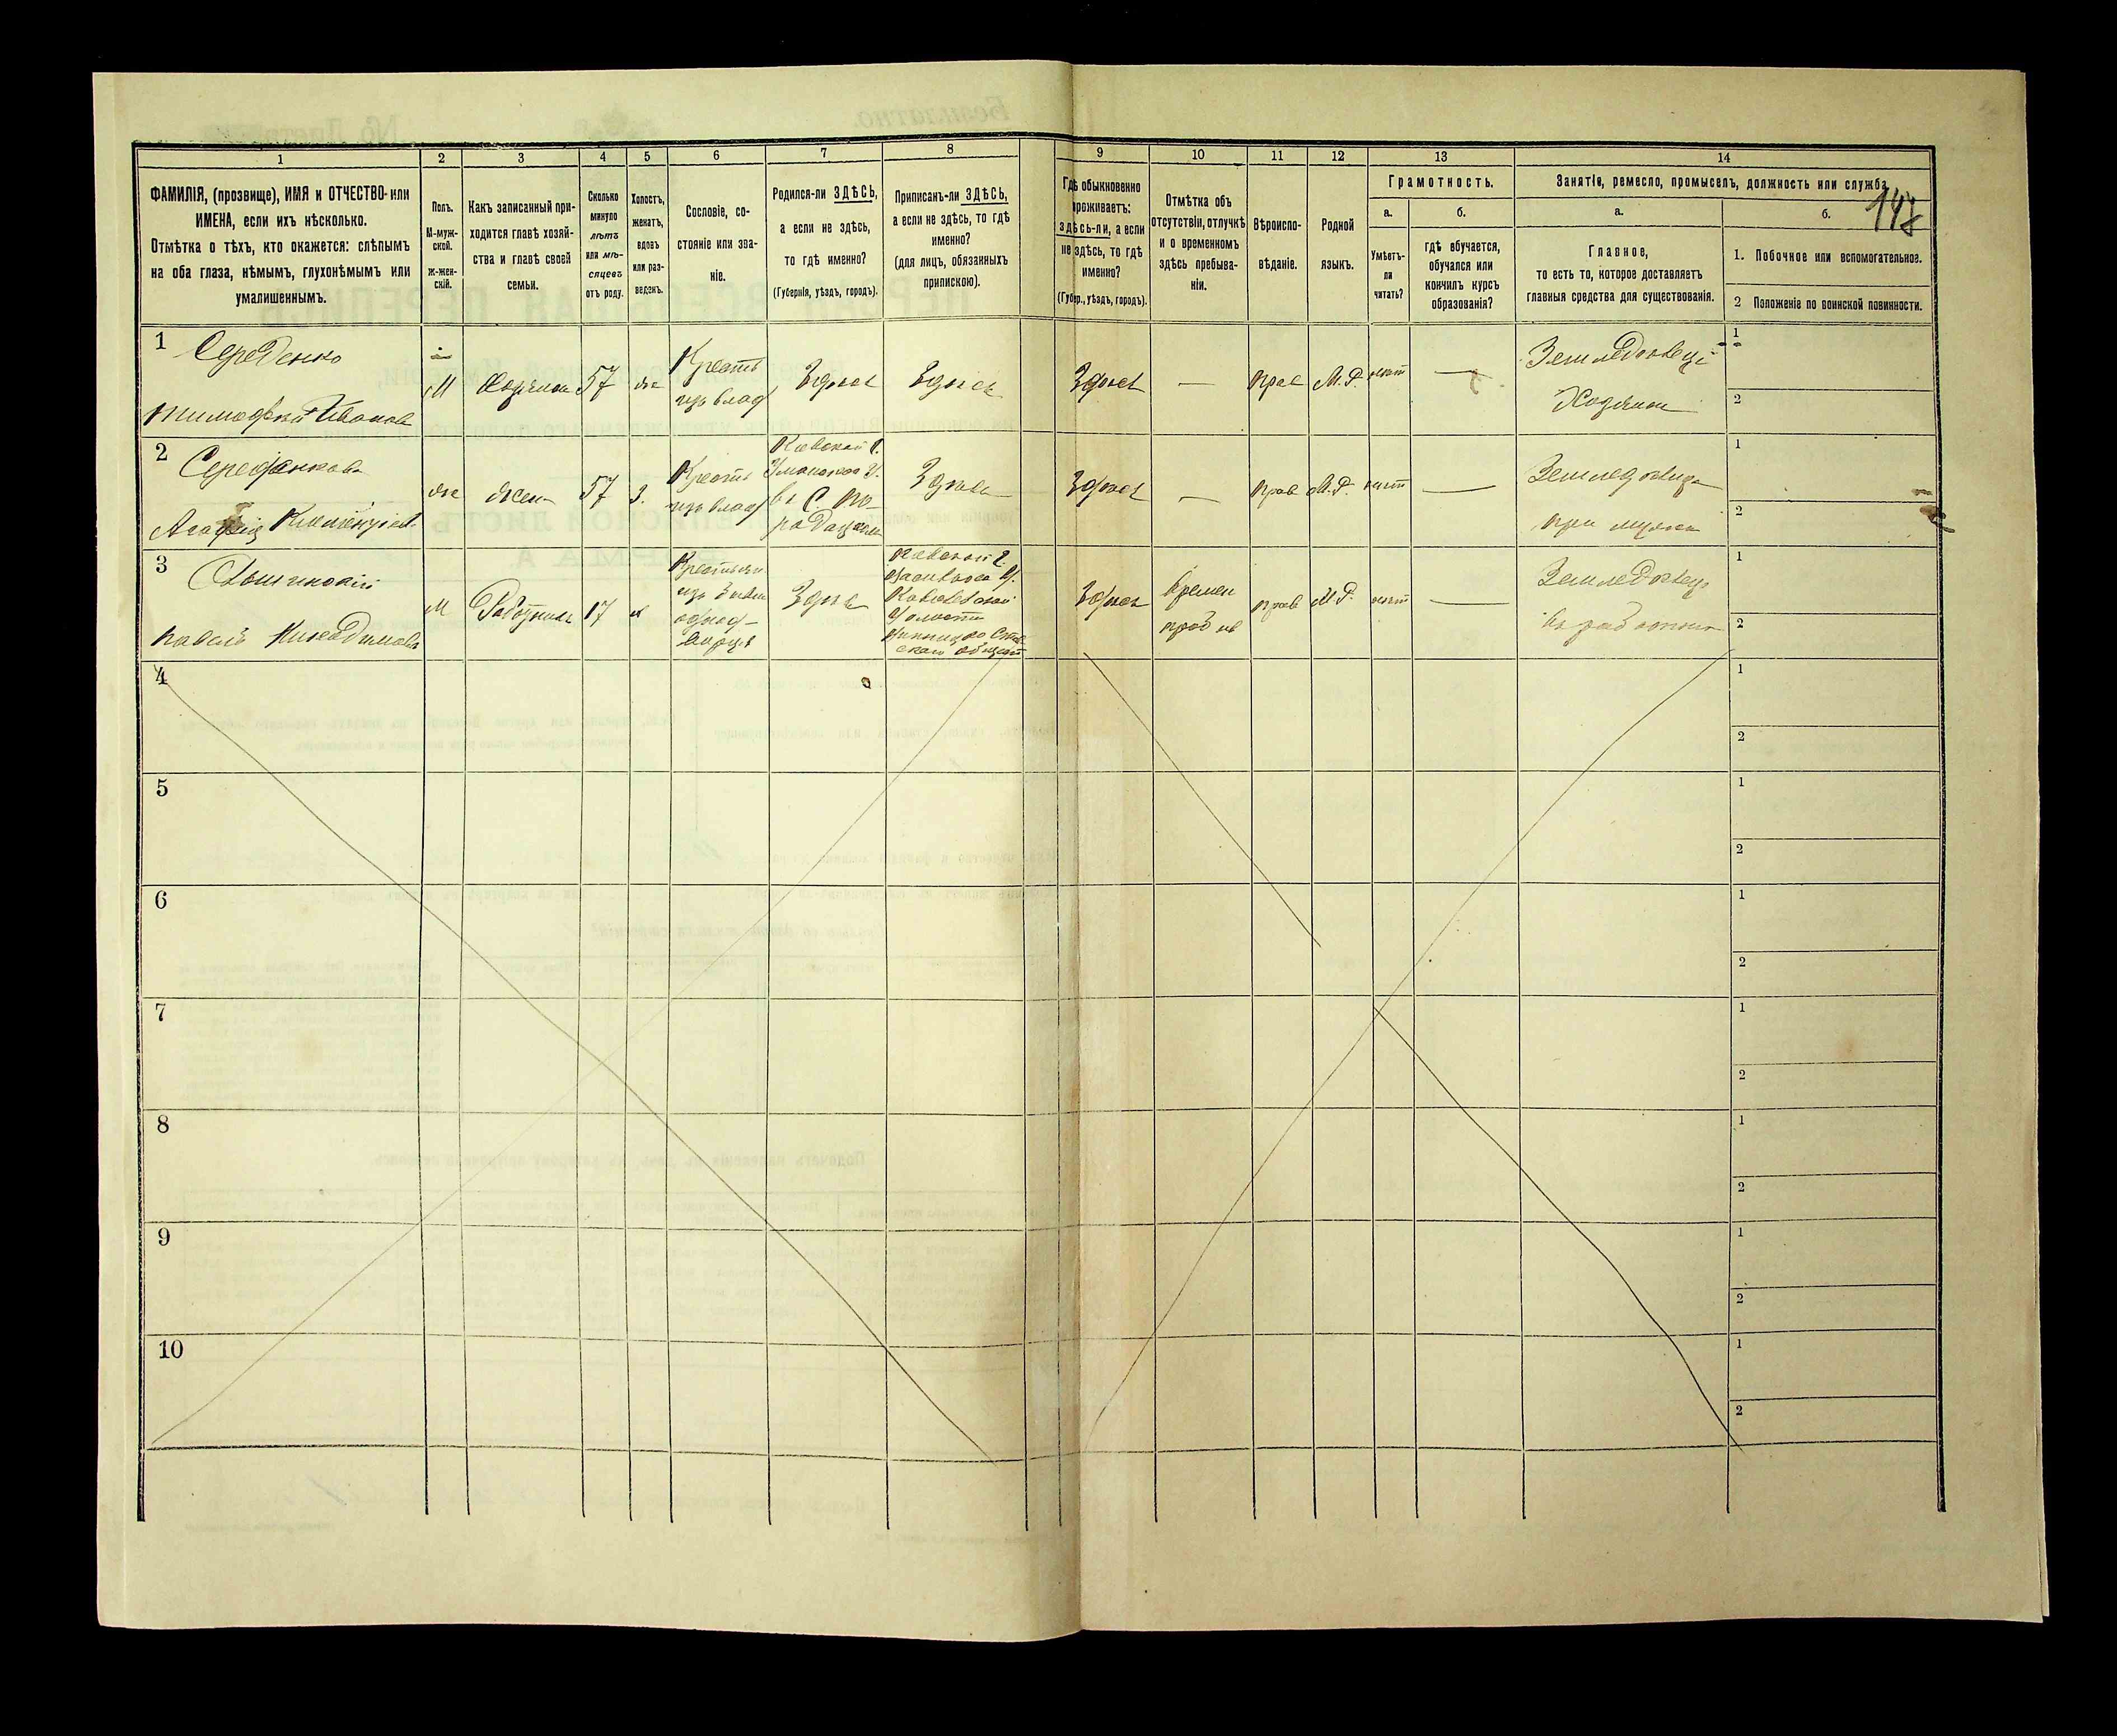 147
1 2 3 4 5 6 7 8 9 10 11 12 13 14
ФАМИЛІЯ, (прозвище), ИМЯ и ОТЧЕСТВО или
ИМЕНА, если ихъ нѣсколько.
Отмѣтка о тѣхъ, кто окажется: слѣпымъ
на оба глаза, нѣмымъ, глухонѣмымъ или
умалишеннымъ.
Полъ.
М-муж-
ской.
ж-жен-
скій.
Какъ записанный при-
ходится главѣ хозяй-
ства и главѣ своей
семьи.
Сколько
минуло
лѣтъ
или мѣ-
сяцевъ
отъ роду.
Холостъ,
женатъ,
вдовъ
или раз-
веденъ.
Сословіе, со-
стояніе или зва-
ніе.
Родился-ли ЗДѢСЬ,
а если не здѣсь,
то гдѣ именно?
(Губернія, уѣздъ, городъ).
Приписанъ-ли ЗДѢСЬ,
а если не здѣсь, то гдѣ
именно?
(для лицъ, обязанныхъ
припискою).
Гдѣ обыкновенно
проживаетъ:
здѣсь-ли, а если
не здѣсь, то гдѣ
именно?
(Губер., уѣздъ, городъ).
Отмѣтка объ
отсутствіи, отлучкѣ
и о временномъ
здѣсь пребыва-
ніи.
Вѣроиспо-
вѣданіе.
Родной
языкъ.
Грамотность.
а.
Умѣетъ-
ли
читать?
б.
гдѣ обучается,
обучался или
кончилъ курсъ
образованія?
Занятіе, ремесло, промыселъ, должность или служба.
а.
Главное,
то есть то, которое доставляетъ
главныя средства для существованія.
б.
1. Побочное или вспомогательное.
2 Положеніе по воинской повинности.
1
Середенко
Тимофей Иванов
М
Хозяин
57
же
Крестъ
изъ влад
Здѣсь
Здѣсь
Здѣсь
—
прав
М.Р.
нѣт
—
Земледелец
Хозяин
1
2
2
Середенкова
Агафия
же
жен
57
З.
Крестъ
изъ влад
Киевской Г.
Уманского У.
въ С.
Здѣсь
Здѣсь
—
прав
М.Р.
нѣт
—
Земледелица
при мужѣ
1
2
3
Павелъ Никодимовъ
М
Работник
17
х
Крестьян
изъ бывш
однод-
ворцев
Здѣсь
Киевской Г.
Здѣсь
Времен
преб
прав
М.Р.
нѣт
—
Земледелец
1
2
4
1
2
5
1
2
6
1
2
7
1
2
8
1
2
9
1
2
10
1
2